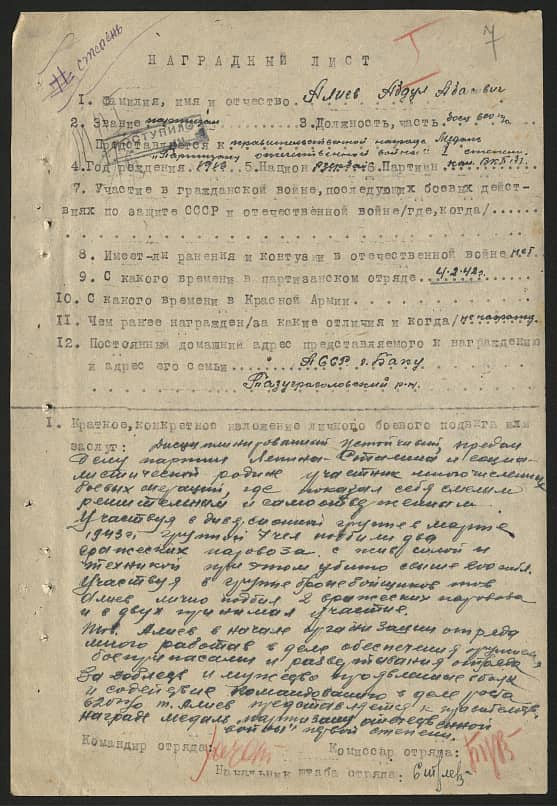 II степень
I
7
НАГРАДНЫЙ ЛИСТ
1. Фамилия, имя и отчество. Алиев Абдул
2. Звание партизан 3. Должность, часть. боец 600 п/о
ПОСТУПИЛО
Представляется к правительственной награде Медаль
"Партизану отечественной войны" I степени
4. Год рождения. 5. Национ. 6. Партийн. кан. ВКП(б)
7. Участие в гражданской войне, последующих боевых дейст-
виях по защите СССР и отечественной войне/где, когда/......
8. Имеет-ли ранения и контузии в отечественной войне нет
9. С какого времени в партизанском отряде. 4.2.42г.
10. С какого времени в Красной Армии.
11. Чем ранее награжден/за какие отличия и когда/ не награжд.
12. Постоянный домашний адрес представляемого к награждению
и адрес его семьи... АССР г. Баку
р-н.
1. Краткое, конкретное изложение личного боевого подвига или
заслуг: Дисциплинированный устойчивый, предан
делу партии Ленина-Сталина и социа-
листической родине участник многочисленных
боевых операций, где показал себя смелым
решительным и самоотверженным.
Участвуя в диверсионной группе в марте
1943г. группой 7 чел. подбили два
вражеских паровоза с живой силой и
техникой при этом убито свыше 200 чел.
Участвуя в группе бронебойщиков тов
Алиев лично подбил 2 вражеских паровоза
и в двух принимал участие.
Тов. Алиев в начале организации отряда
много работал в деле обеспечения оружием,
боеприпасами и развертывания отряда.
За доблесть и мужество проявленные в боях
и содействие командованию в деле роста
т. Алиев представляется к правительств.
награде медаль "партизану отечественной
войны" первой степени.
Командир отряда: Комиссар отряда:
Начальник штаба отряда: